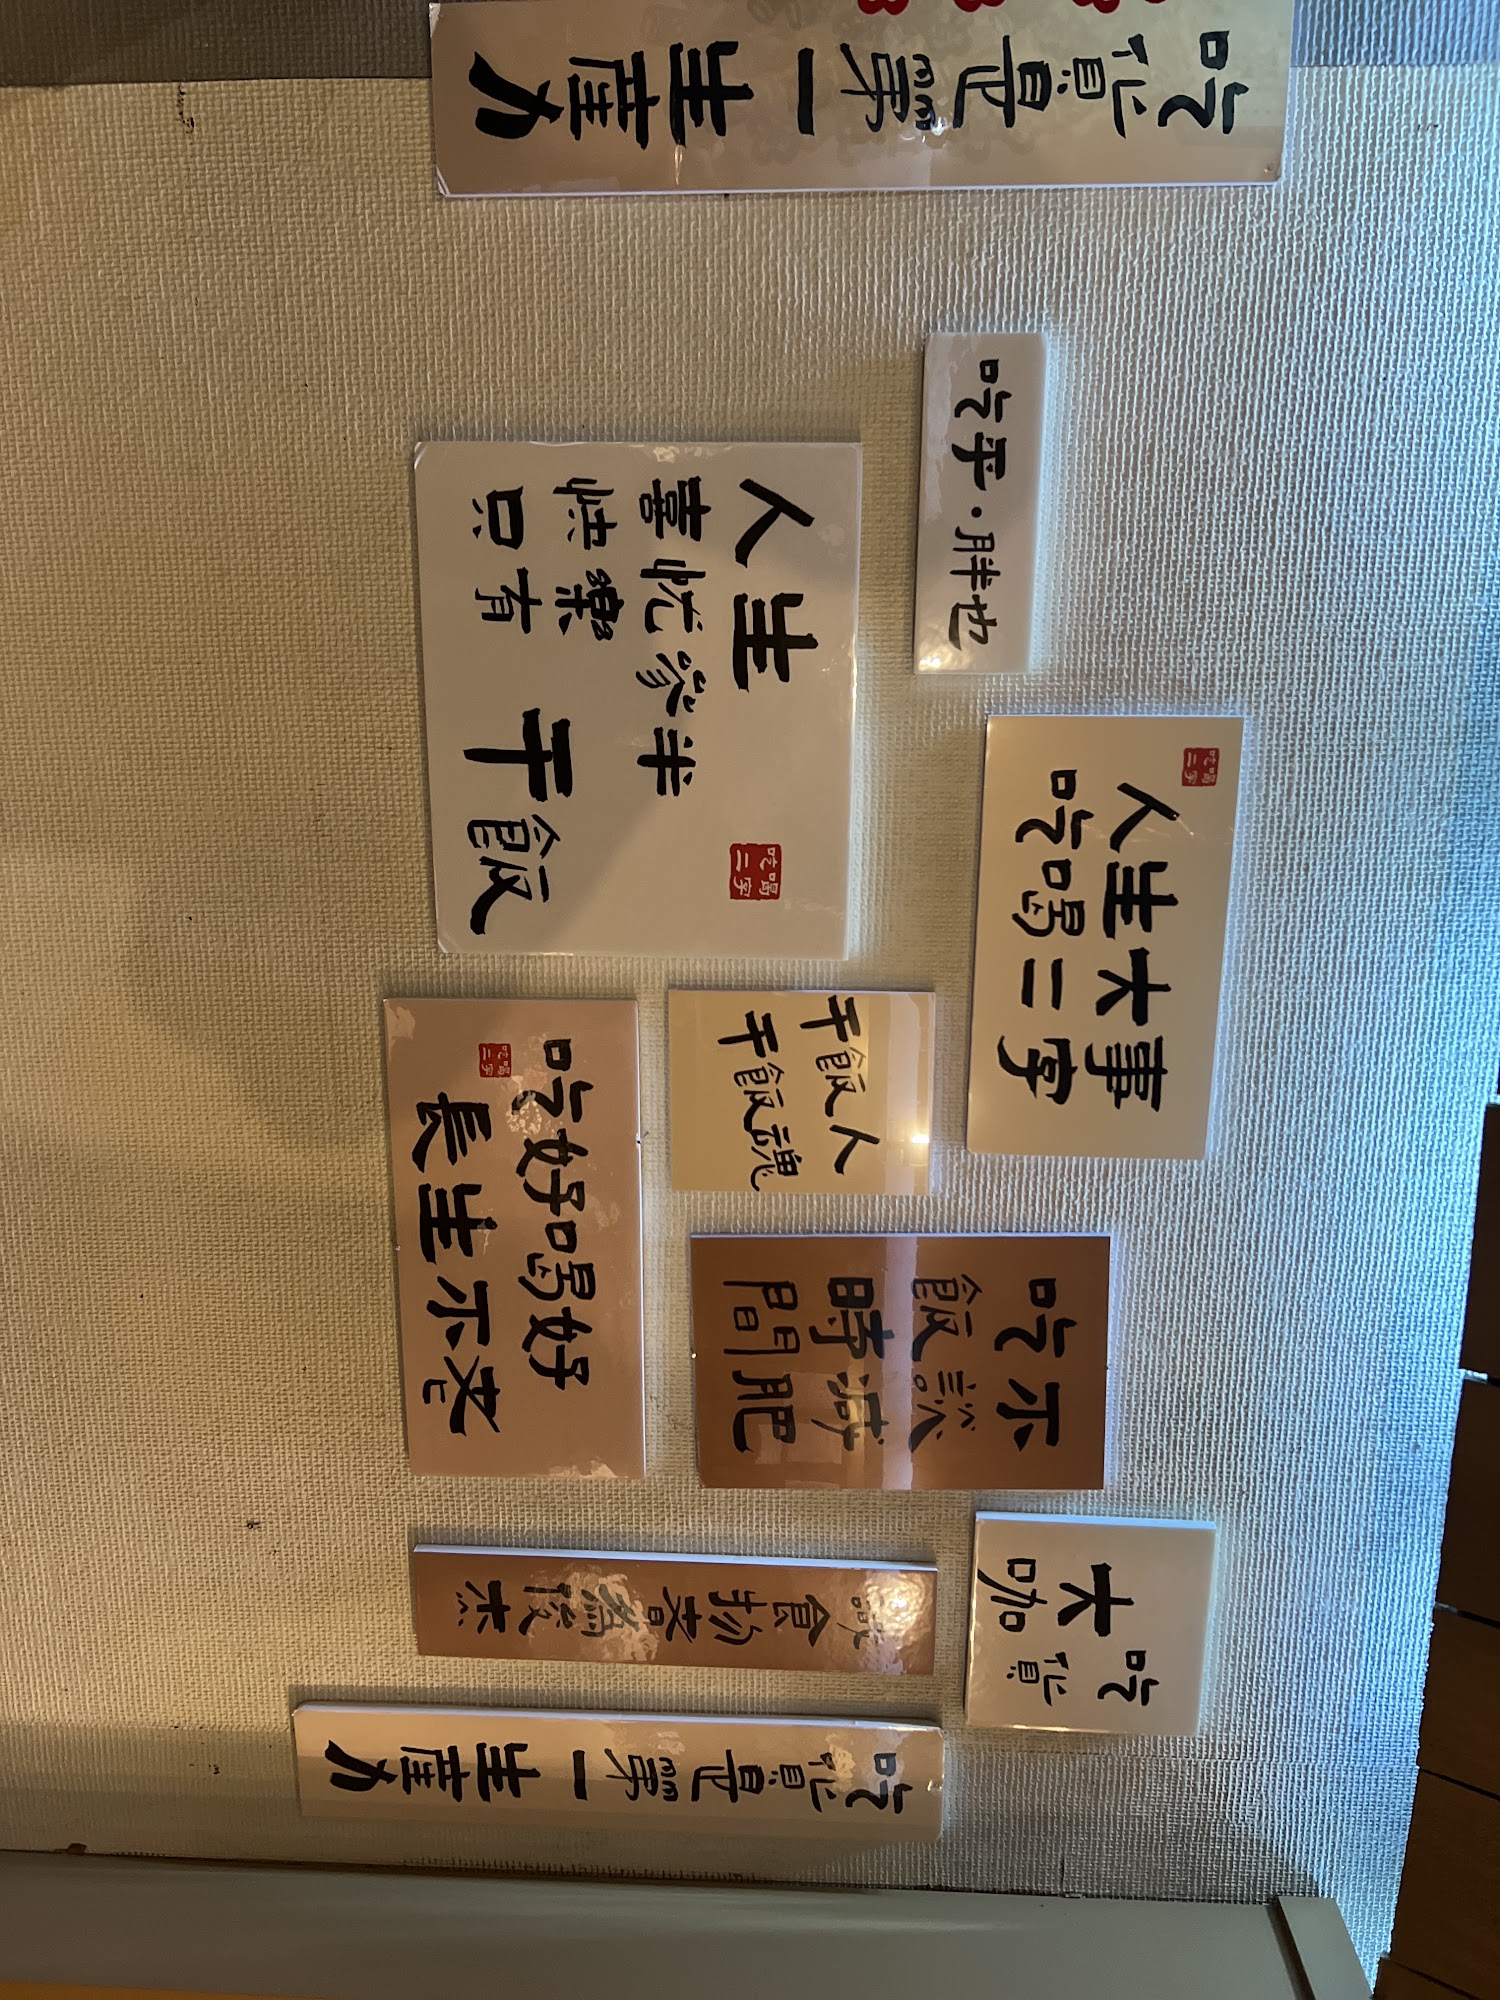 吃貨是第一生產力
吃乎·胖也
人生
喜忧參半
快樂
只有干飯
吃喝
二字
吃喝
二字
人生大事
吃喝二字
干飯人
干飯魂
吃好喝好
長生不老
吃喝
二字
吃飯時間
不談減肥
大咖
吃貨
識食物者為俊杰
吃貨是第一生產力